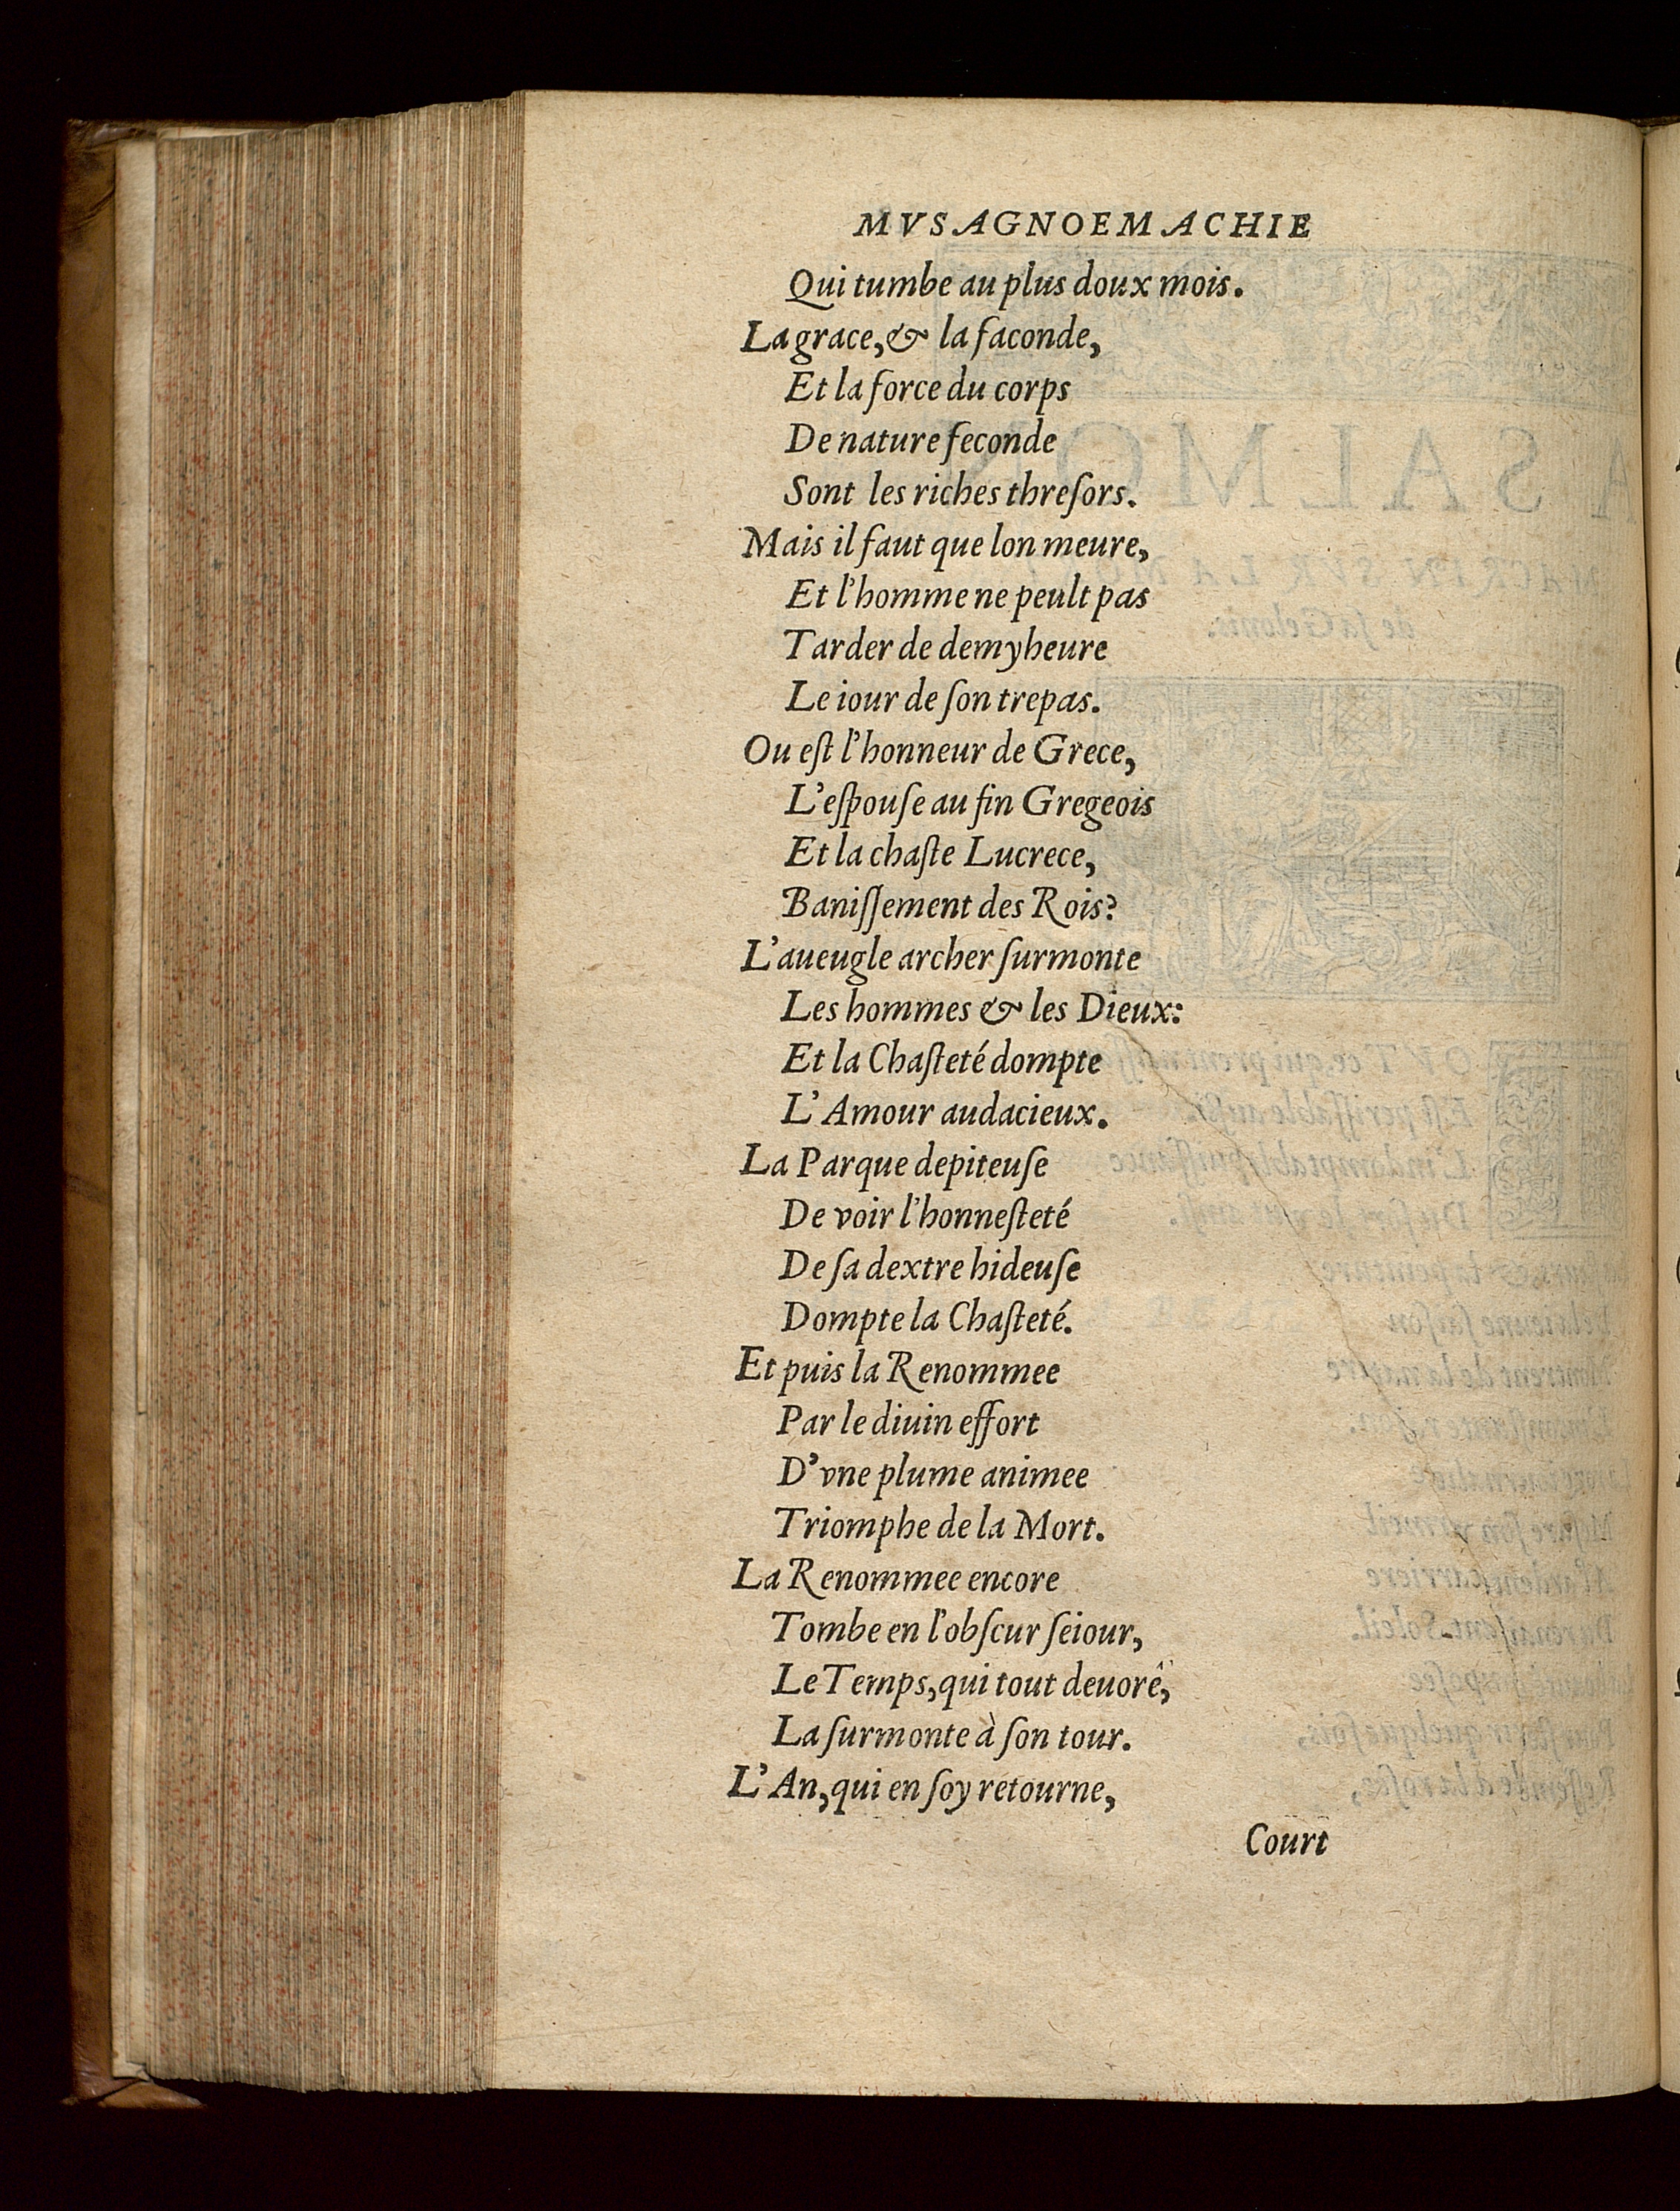 MVSAGNOEMACHIE
Qui tumbe au plus doux mois.
La grace, & la faconde,
Et la force du corps
De nature feconde
Sont les riches threſors.
Mais il faut que lon meure,
Et l'homme ne peult pas
Tarder de demyheure
Le iour de ſon trepas.
Ou eſt l'honneur de Grece,
L'eſpouſe au fin Gregeois
Et la chaſte Lucrece,
Baniſſement des Rois?
L'aueugle archer ſurmonte
Les hommes & les Dieux:
Et la Chaſteté dompte
L'Amour audacieux.
La Parque depiteuſe
De voir l'honneſteté
De ſa dextre hideuſe
Dompte la Chaſteté.
Et puis la Renommee
Par le diuin effort
D'vne plume animee
Triomphe de la Mort.
La Renommee encore
Tombe en l'obſcur ſeiour,
Le Temps, qui tout deuore,
La ſurmonte à ſon tour.
L'An, qui en ſoy retourne,
Court